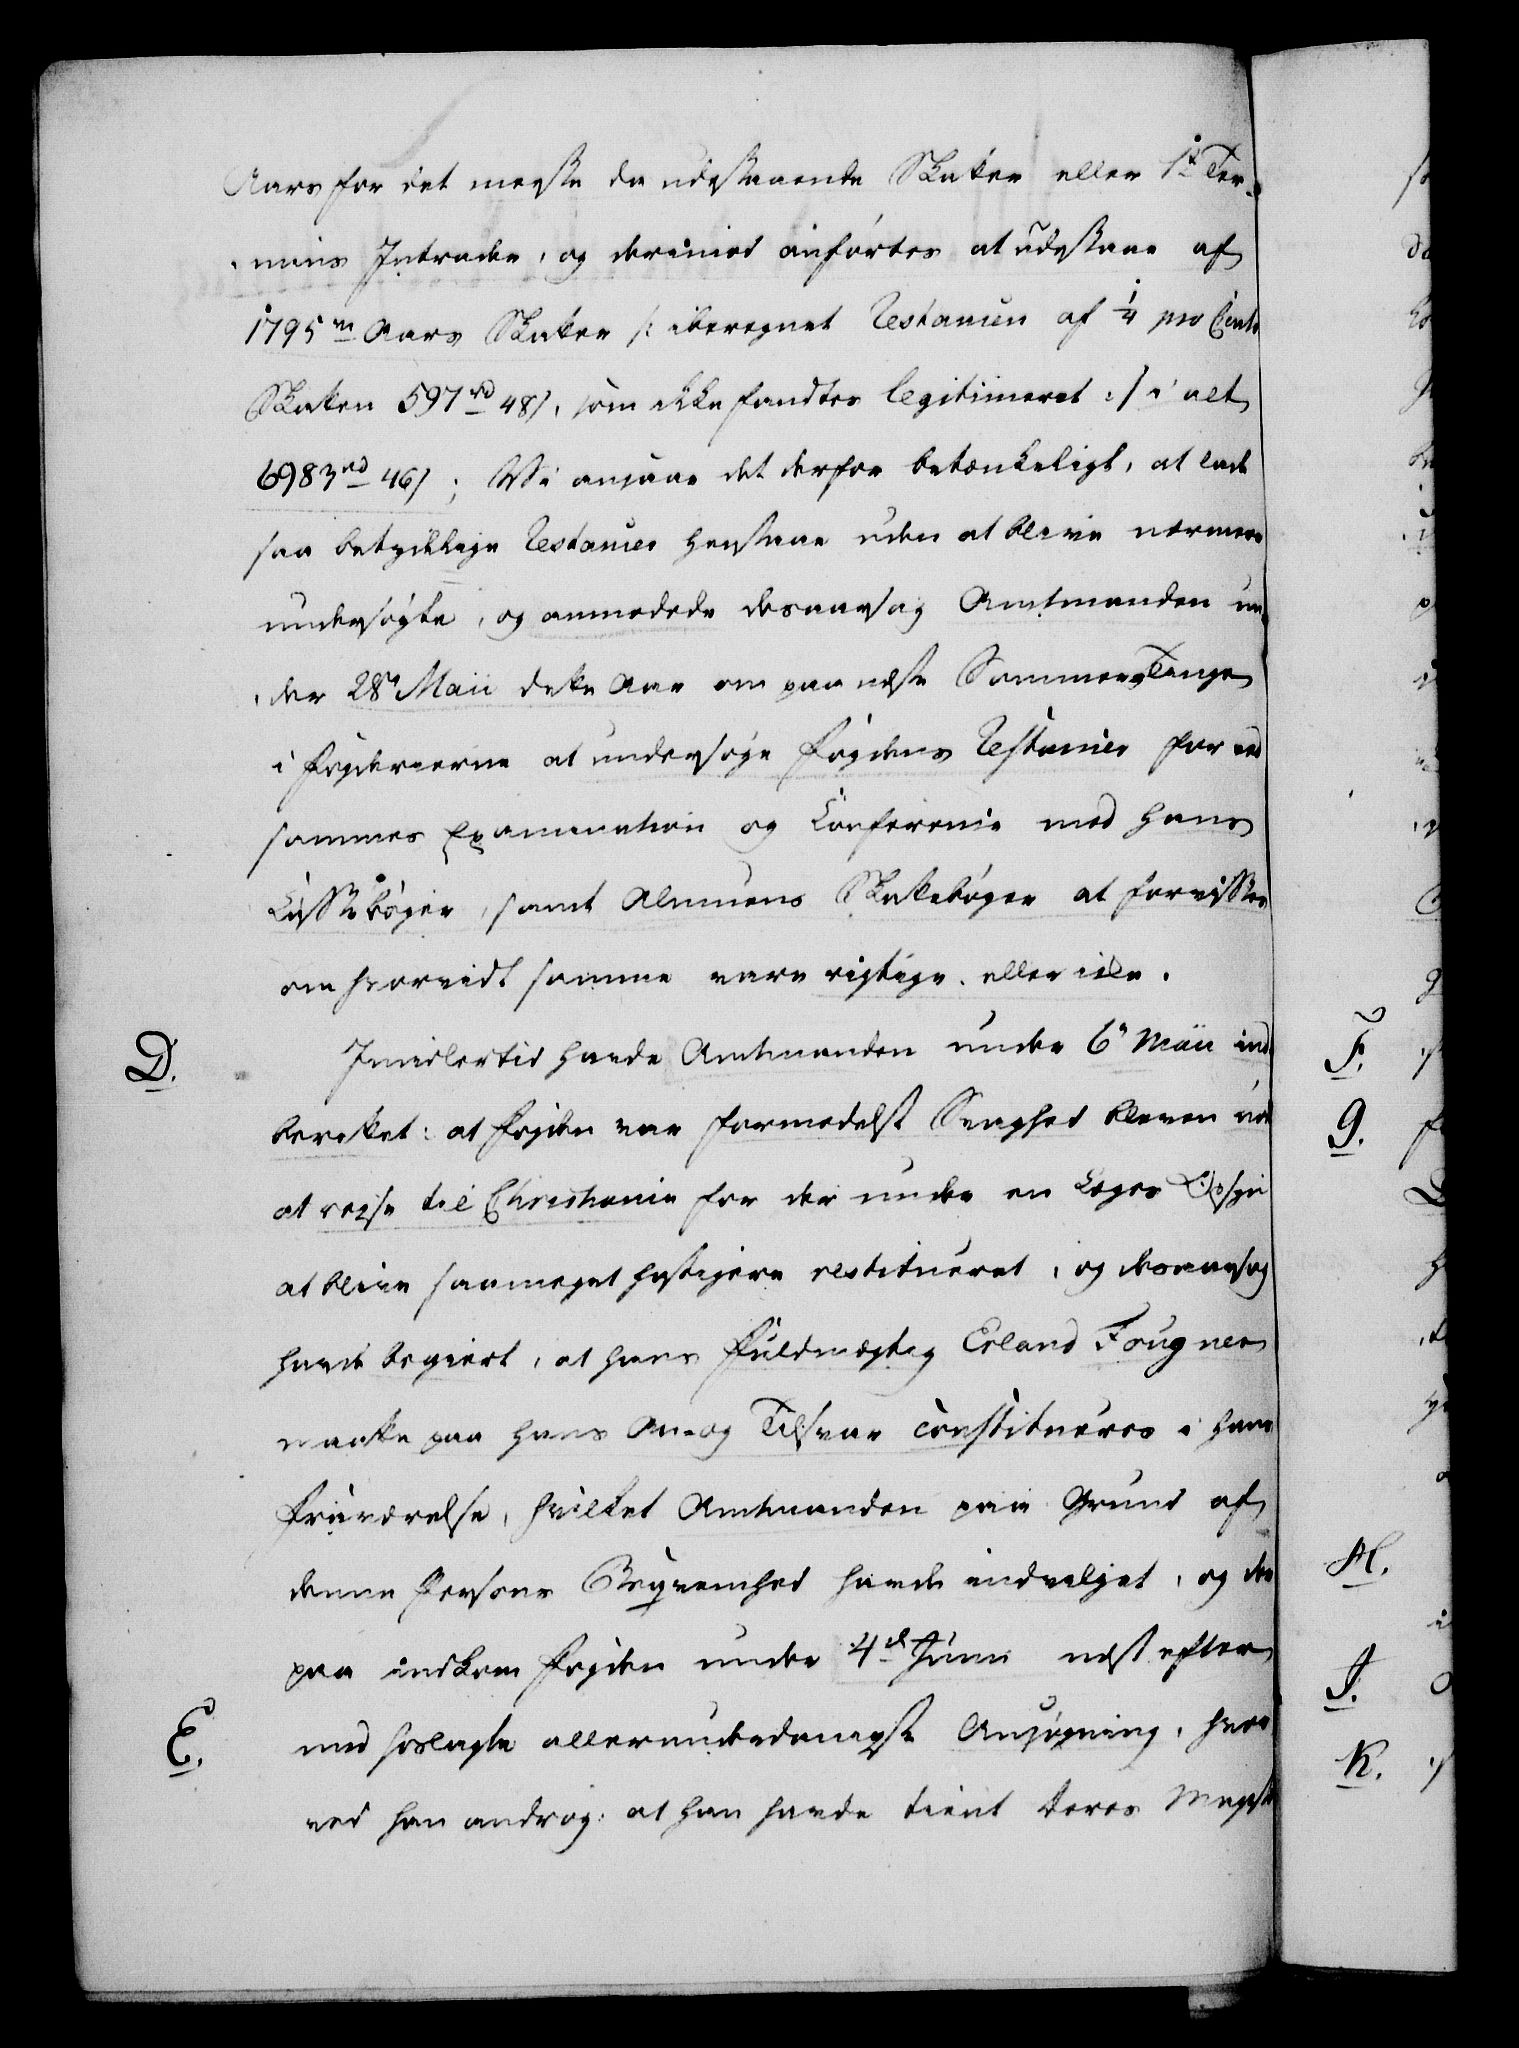 Aars for det meeste da udestaaende Skatter eller 1te Ter-
-mins Intrader, og derimod anførtes at udestaae af
1795de Aars Skatter /: iberegnet Restancen af 1/4 pro Cento
Skatten 597 rd 48 s, som ikke fandtes legitimeret :/ i alt
6983 rd 46 s; Vi ansaae det derfor betænkeligt, at lade
saa betydelige Restancer henstaae uden at blive nærmere
undersøgte, og anmodede desaarsag Amtmanden un-
-der 28de Maii dette Aar om paa næste Sommer Tinge
i Fogderierne at undersøge Fogdens Restancer for ved
sammes Examination og Conference med hans
Cassebøger, samt Almuens Skattebøger at forvisses
om hvorvidt samme vare rigtige eller ikke.
D.
Imidlertid havde Amtmanden under 6te Maii ind-
berettet: at Fogden var formedelst Svaghed bleven nød
at reyse til Christiania for der under en Læges Opsyn
at blive saameget hastigere restitueret, og desaarsag
havde begiert, at hans Fuldmægtig Erland Fougner
maatte paa hans An- og Tilsvar constitueres i hans
Fraværelse, hvilket Amtmanden paa Grund af
denne Persons Beqvemhed havde indvilget, og der
paa indkom Fogden under 4de Junii næst efter
E.
med hoslagte allerunderdanigste Ansøgning, hvor
ved han androg: at han havde tient Deres Mayst
F.
G.
H.
I.
K.